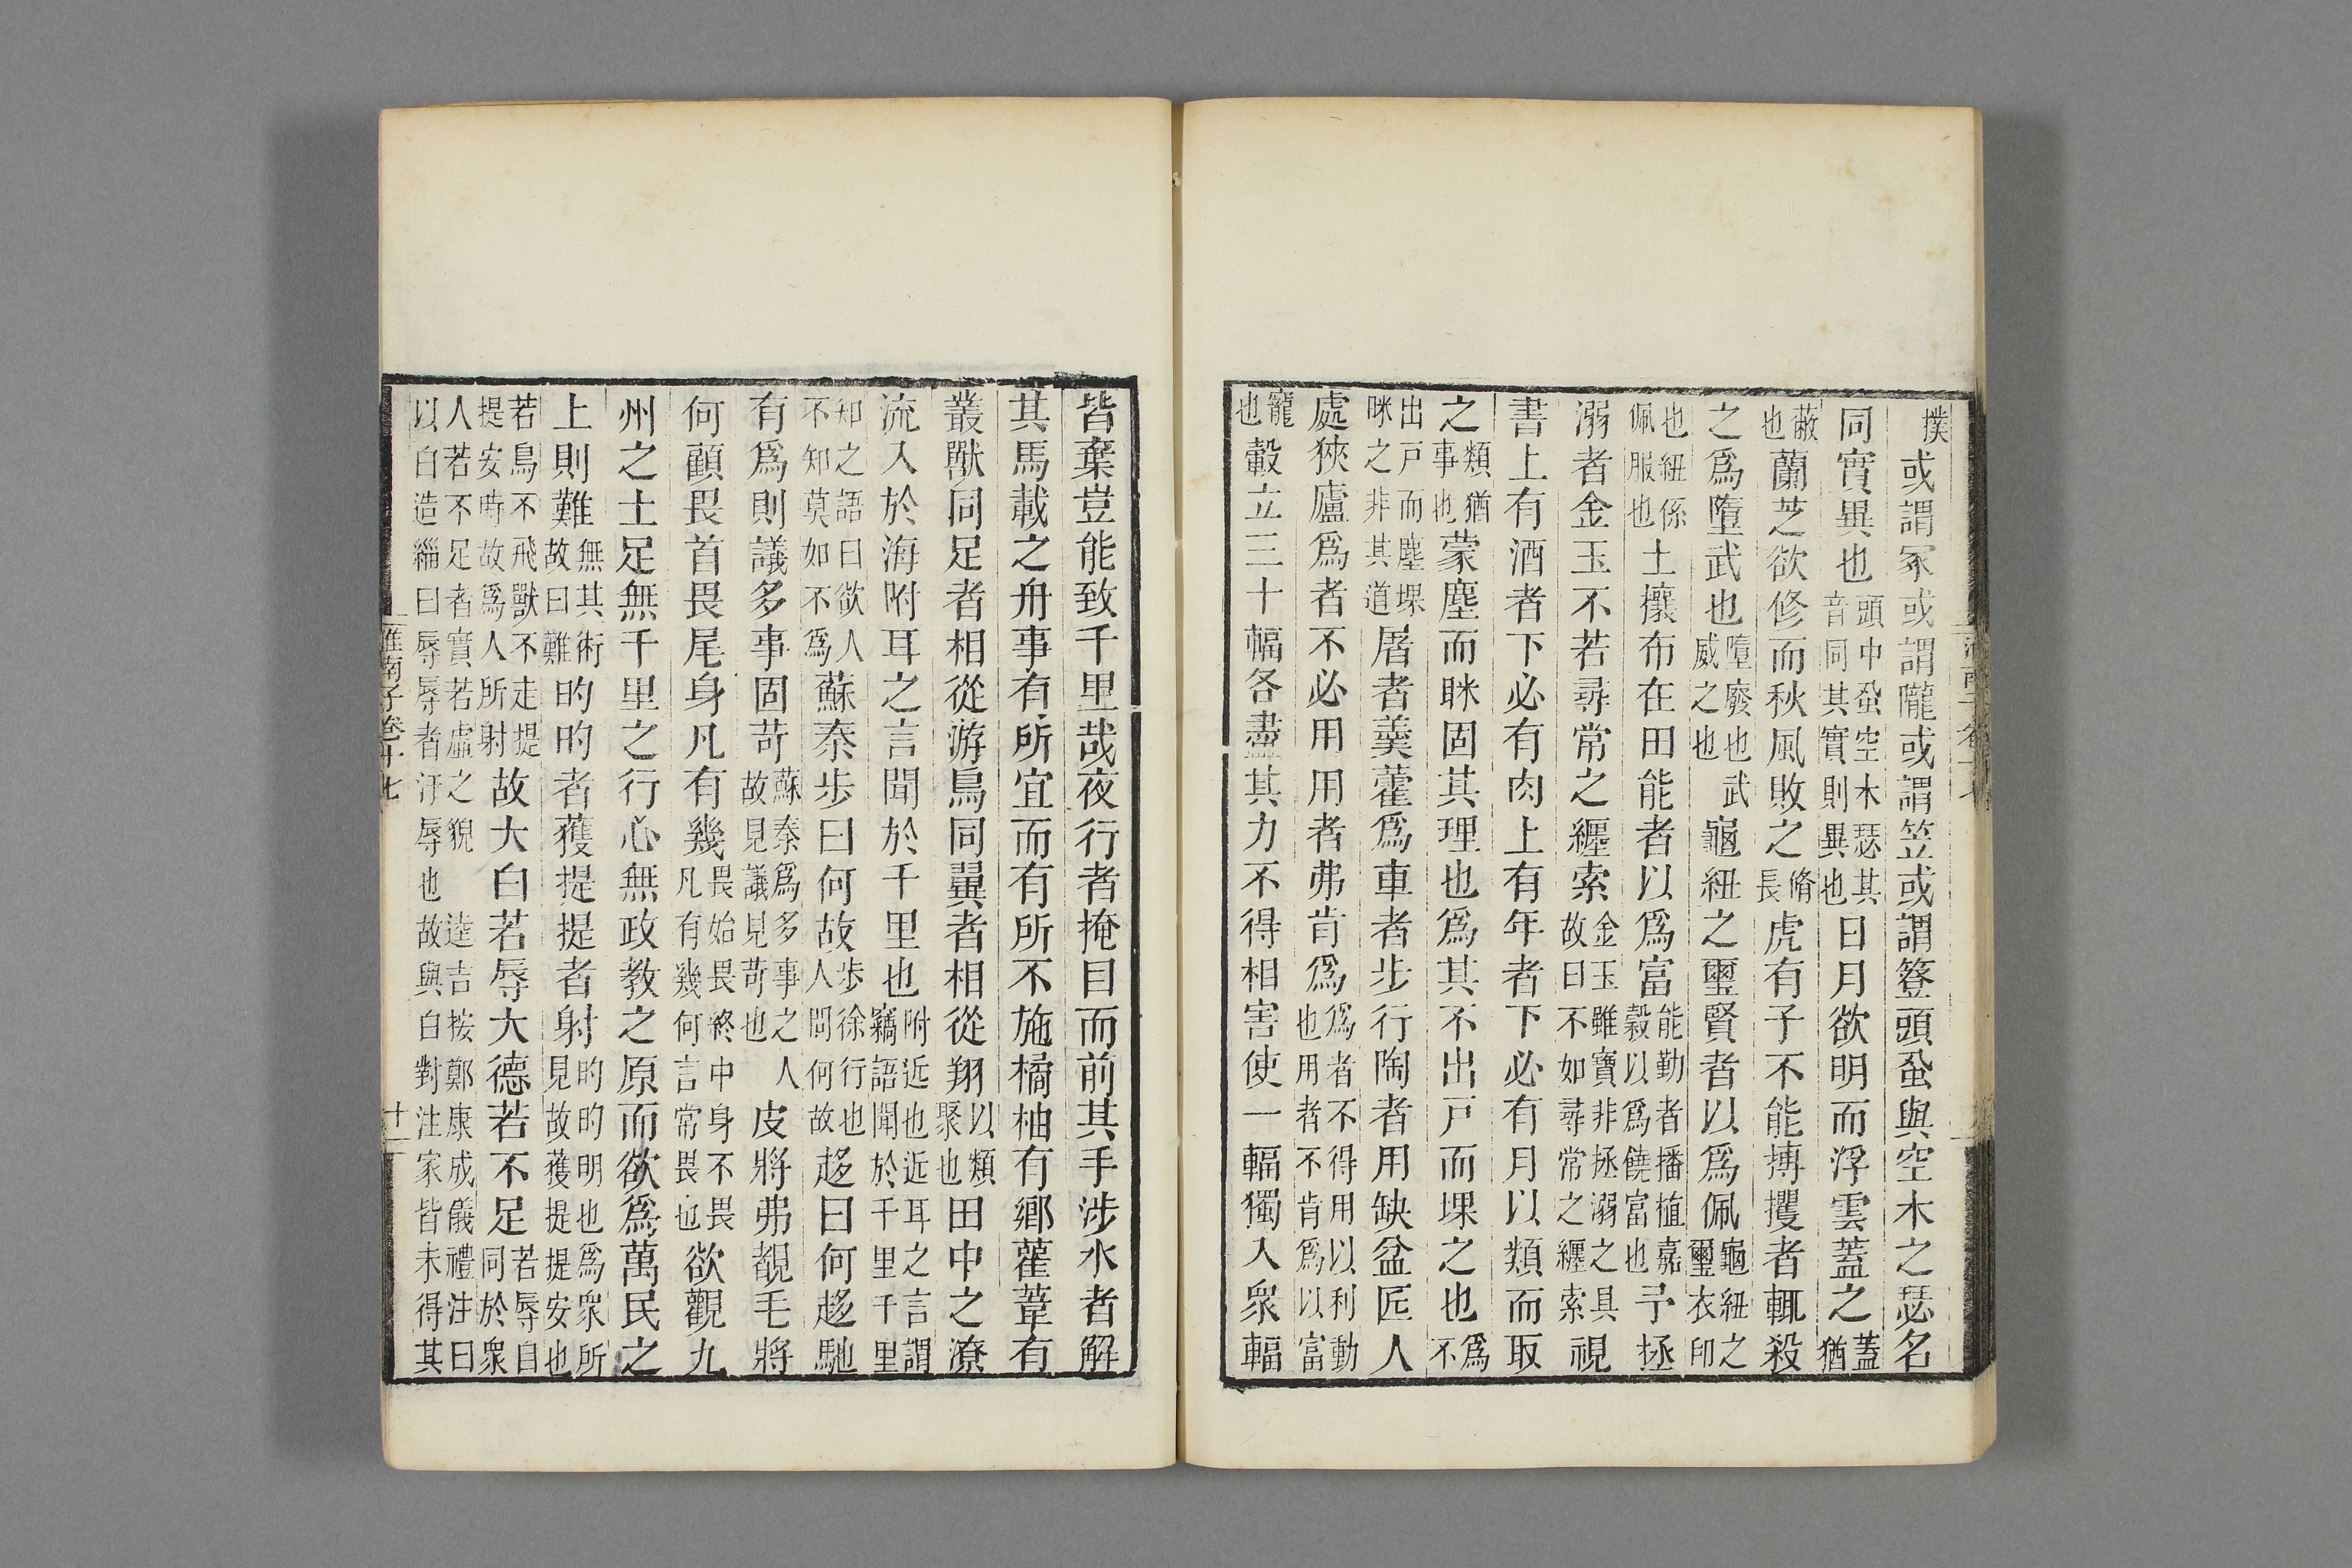 撲或謂冢或謂隴或謂笠或謂簦頭蝨與空木之瑟名
同實異也頭中蝨空木瑟其音同其實則異也日月欲明而浮雲蓋之蓋猶
蔽也蘭芝欲修而秋風敗之脩長虎有子不能搏攫者輒殺
之爲墮武也墮廢也武威之也龜紐之璽賢者以爲佩龜紐之璽衣印
也紐係佩服也土攘布在田能者以爲富能勤者播植嘉穀以爲饒富也予拯
溺者金玉不若尋常之纏索金玉雖寶非拯溺之具故曰不如尋常之纏索視
書上有酒者下必有肉上有年者下必有月以類而取
之類猶事也蒙塵而眯固其理也爲其不出戸而堁之也爲不
出戸而塵堁眯之非其道屠者羹藿爲車者步行陶者用缺盆匠人
處狹廬爲者不必用用者弗肯爲爲者不得用以利動也用者不肯爲以富
寵也轂立三十幅各盡其力不得相害使一輻獨入衆輻
皆棄豈能致千里哉夜行者掩目而前其手涉水者解
其馬載之舟事有所宜而有所不施橘柚有鄉雚葦有
叢獸同足者相從游鳥同翼者相從翔以類聚也田中之潦
流入於海附耳之言聞於千里也附近也近耳之言謂竊語聞於千里千里
知之語曰欲人不知莫如不爲蘇秦步曰何故步徐行也人問何故趍曰何趍馳
有爲則議多事固苛蘇秦爲多事之人故見議見苛也皮將弗覩毛將
何顧畏首畏尾身凡有幾畏始畏終中身不畏凡有幾何言常畏也欲觀九
州之土足無千里之行心無政教之原而欲爲萬民之
上則難無其術故曰難旳旳者獲提提者射旳旳明也爲衆所見故獲提提安也
若鳥不飛獸不走提提安時故爲人所射故大白若辱大德若不足若辱自同於衆
人若不足者實若虛之貌 逵吉按鄭康成儀禮注曰以白造緇曰辱辱者汙辱也故與白對注家皆未得其
淮南子卷十七
十一